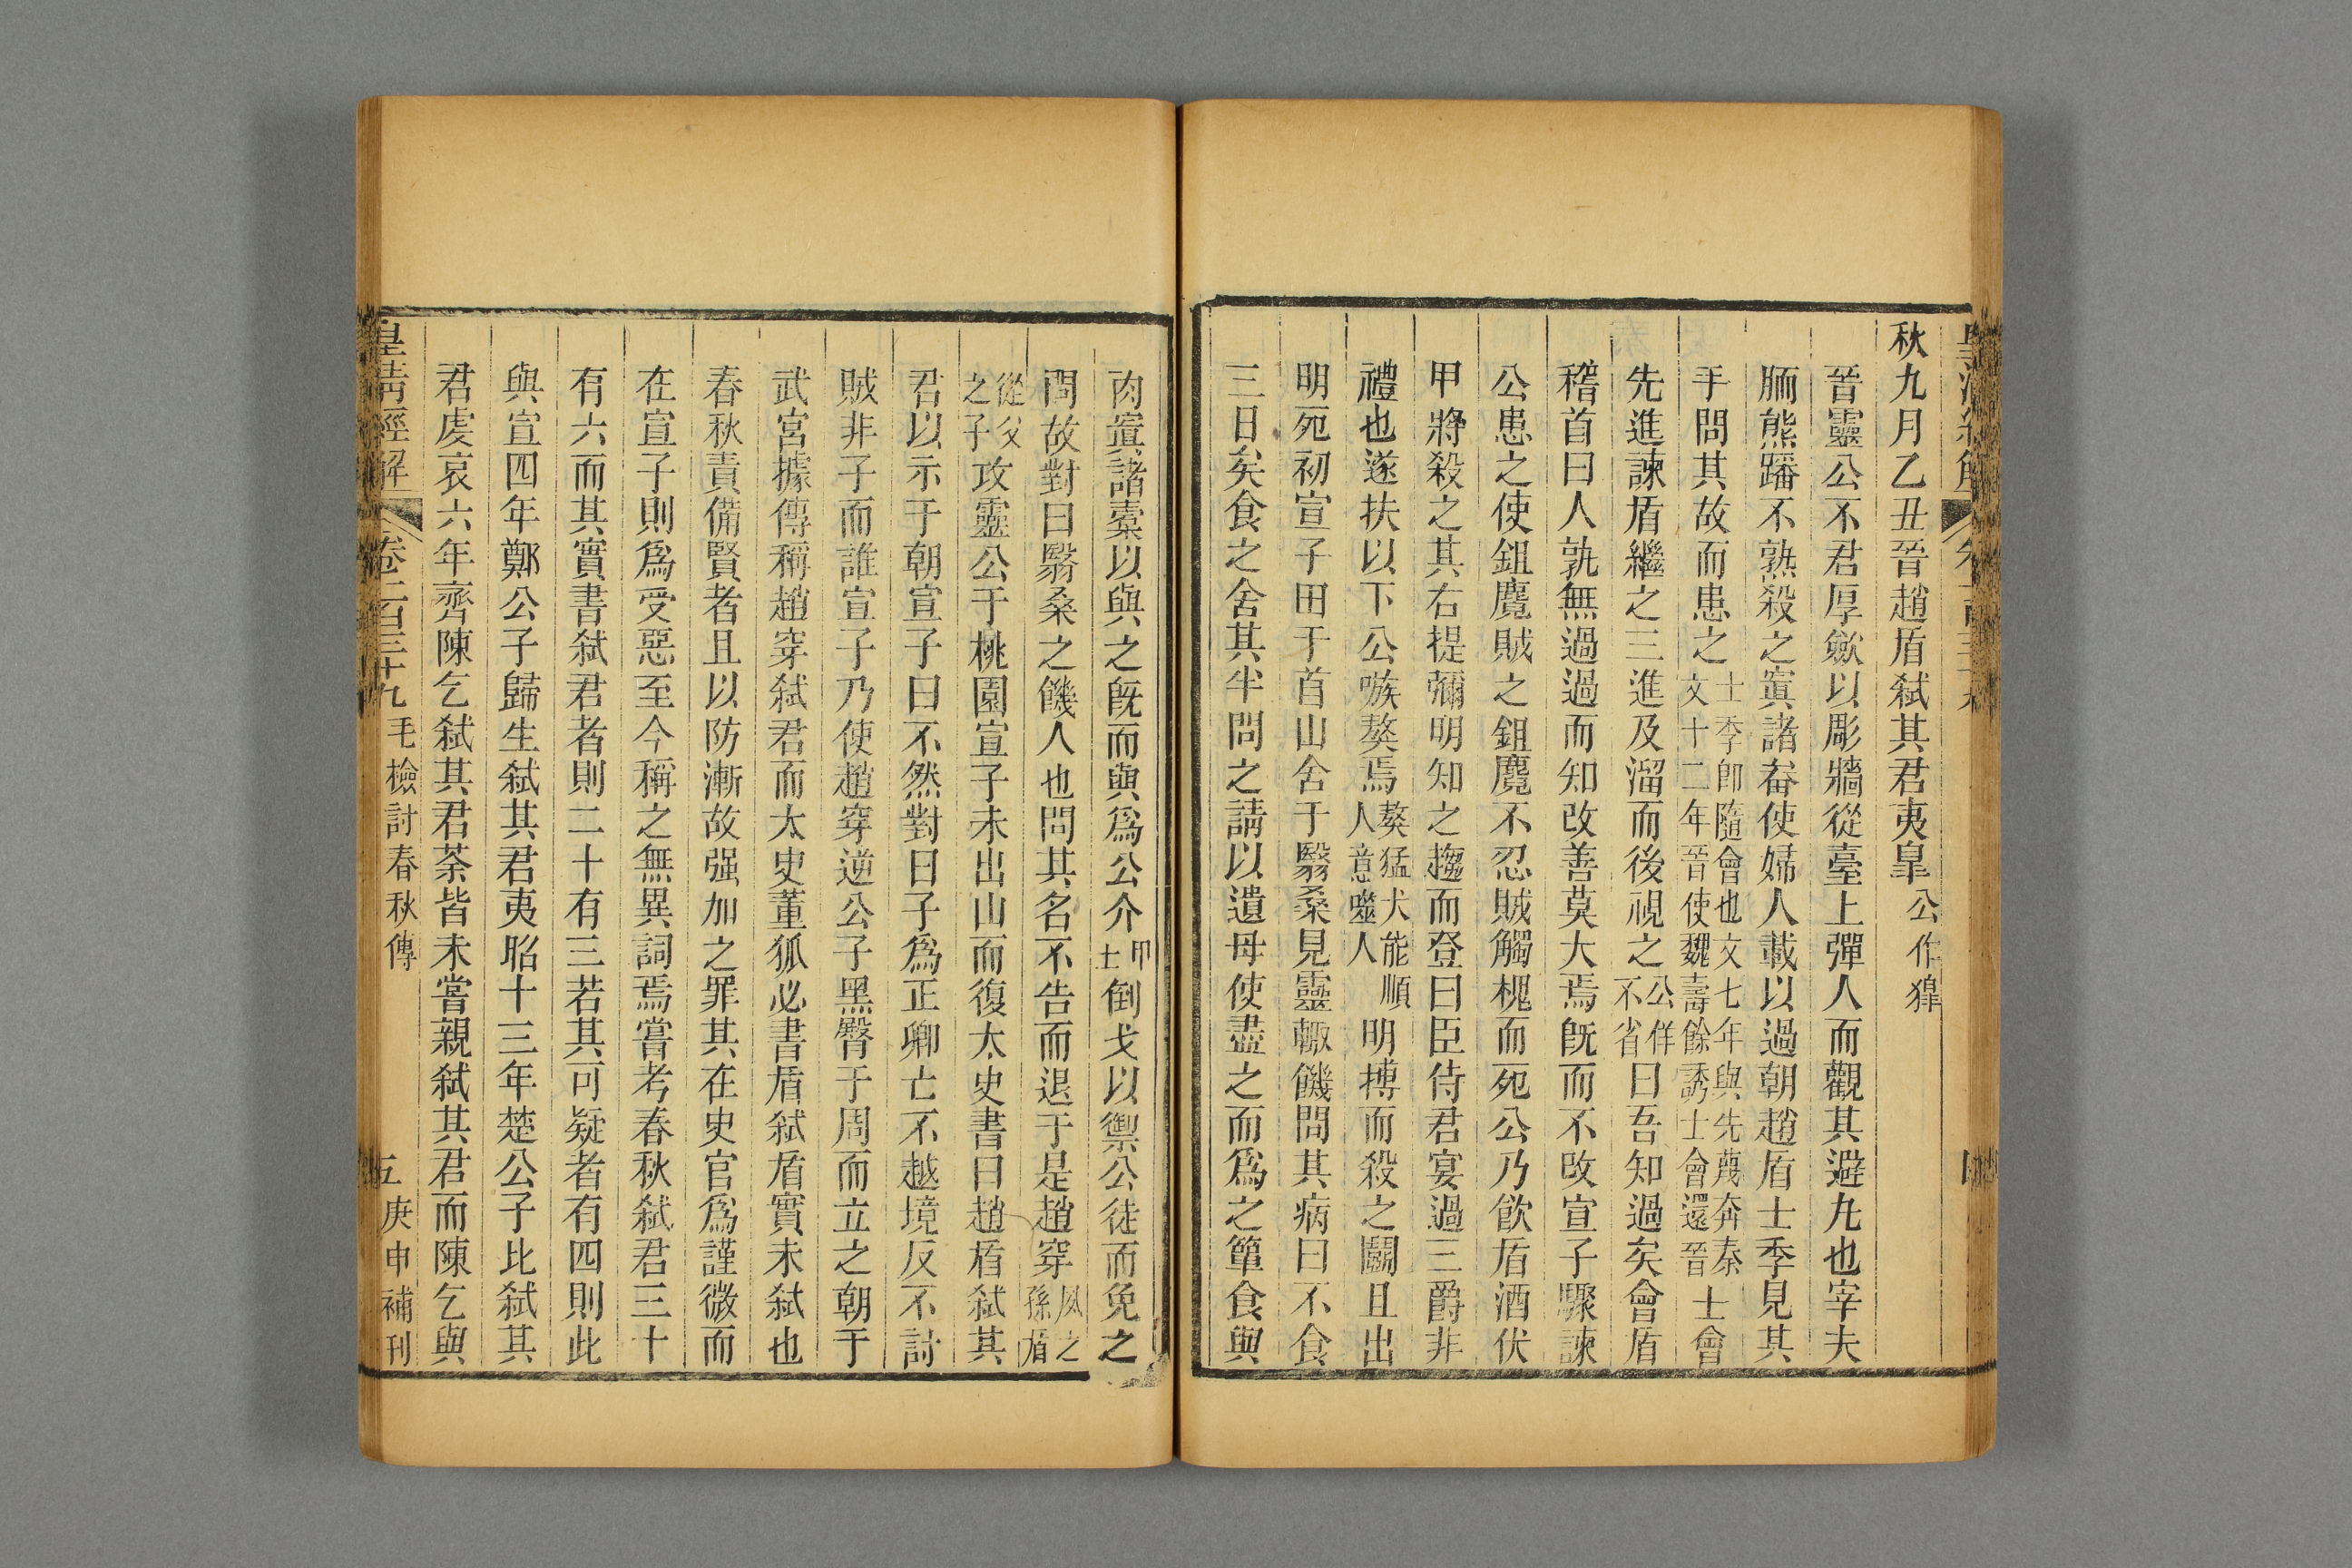 秋九月乙丑晉趙盾弒其君夷臯公作獋
晉靈公不君厚歛以彫牆從臺上彈人而觀其避丸也宰夫
胹熊蹯不熟殺之寘諸畚使婦人載以過朝趙盾士季見其
手問其故而患之士季卽隨會也文七年與先蔑奔秦文十二年晉使魏壽餘誘士會還晉士會
先進諫盾繼之三進及溜而後視之公佯不省曰吾知過矣會盾
稽首曰人孰無過過而知改善莫大焉旣而不改宣子驟諫
公患之使鉏麑賊之鉏麑不忍賊觸槐而死公乃飲盾酒伏
甲將殺之其右提彌明知之趨而登曰臣侍君宴過三爵非
禮也遂扶以下公嗾獒焉獒猛犬能順人意噬人明搏而殺之鬭且出
明死初宣子田于首山舍于翳桑見靈輒餓問其病曰不食
三日矣食之舍其半問之請以遺母使盡之而爲之簞食與
肉寘諸橐以與之旣而與爲公介甲士倒戈以禦公徒而免之
問故對曰翳桑之餓人也問其名不告而退于是趙穿夙之孫盾
從父之子攻靈公于桃園宣子未出山而復太史書曰趙盾弒其
君以示于朝宣子曰不然對曰子爲正卿亡不越境反不討
賊非子而誰宣子乃使趙穿逆公子黑臀于周而立之朝于
武宮據傳稱趙穿弒君而太史董狐必書盾弒盾實未弒也
春秋責備賢者且以防漸故强加之罪其在史官爲謹微而
在宣子則爲受惡至今稱之無異詞焉嘗考春秋弒君三十
有六而其實書弒君者則二十有三若其可疑者有四則此
與宣四年鄭公子歸生弒其君夷昭十三年楚公子比弒其
君虔哀六年齊陳乞弒其君荼皆未嘗親弒其君而陳乞與
皇清經解 卷一百三十九 毛檢討春秋傳 五 庚申補刊